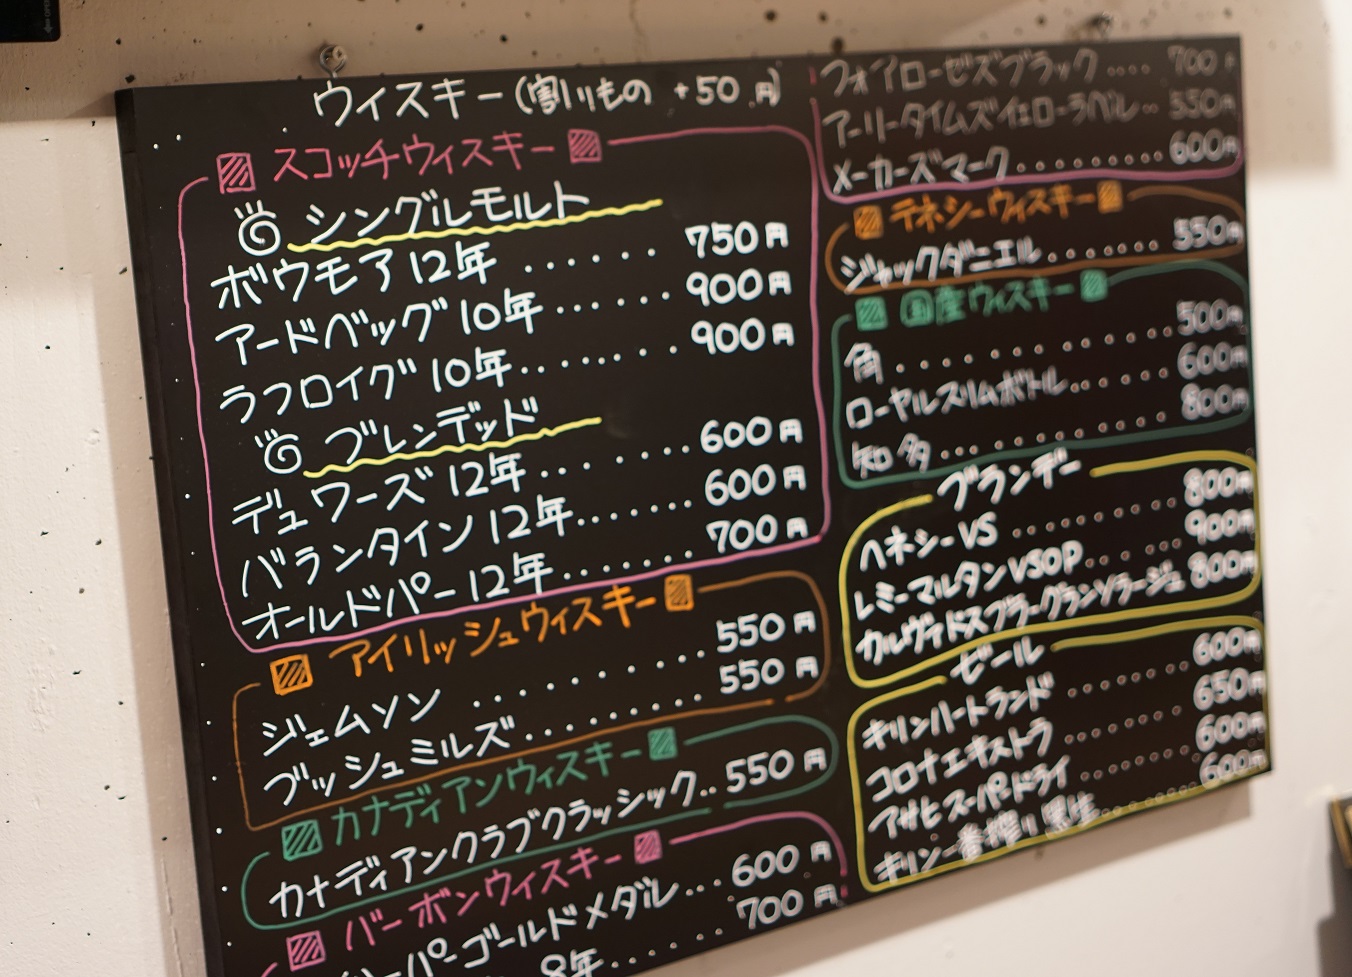 ウィスキー(割りもの +50円)
スコッチウィスキー
シングルモルト
ボウモア12年......750円
アードベッグ10年......900円
ラフロイグ10年........900円
ブレンデッド
デュワーズ12年... .....600円
バランタイン12年.......600円
オールドパー12年......700円
アイリッシュウィスキー
ジェムソン ..........550円
ブッシュミルズ.........550円
カナディアンウィスキー
カナディアンクラブクラッシック..550円
バーボンウィスキー
ーパーゴールドメダル...600円
8年......700円
フォアローゼズブラック....700円
アーリータイムズイエローラベル..550円
メーカーズマーク.........600円
テネシーウィスキー
ジャックダニエル.......550円
国産ウィスキー
角.............500円
ローヤルスリムボトル......600円
知多............800円
ブランデー
ヘネシーVS..........800円
レミーマルタンVSOP.. ...900円
カルヴァドスブラーグランソラージュ 800円
ビール
キリンハートランド........600円
コロナエキストラ........650円
アサヒスーパードライ........600円
キリン一番搾り黒生........600円